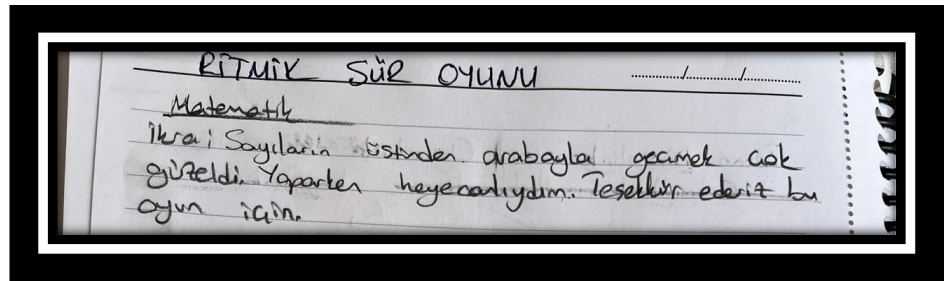 RİTMİK SÜR OYUNU ............/............/............
Matematik
İkra; Sayıların üstünden arabayla geçmek çok
güzeldi. Yaparken heyecanlıydım. Teşekkür ederiz bu
oyun için.